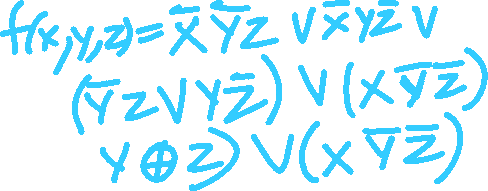 f(x,y,z)= x̅ y̅ z ∨ x̅ y z̅ ∨
(y̅ z ∨ y z̅) ∨ (x y̅ z̅)
y ⊕ z) ∨ (x y̅ z̅)